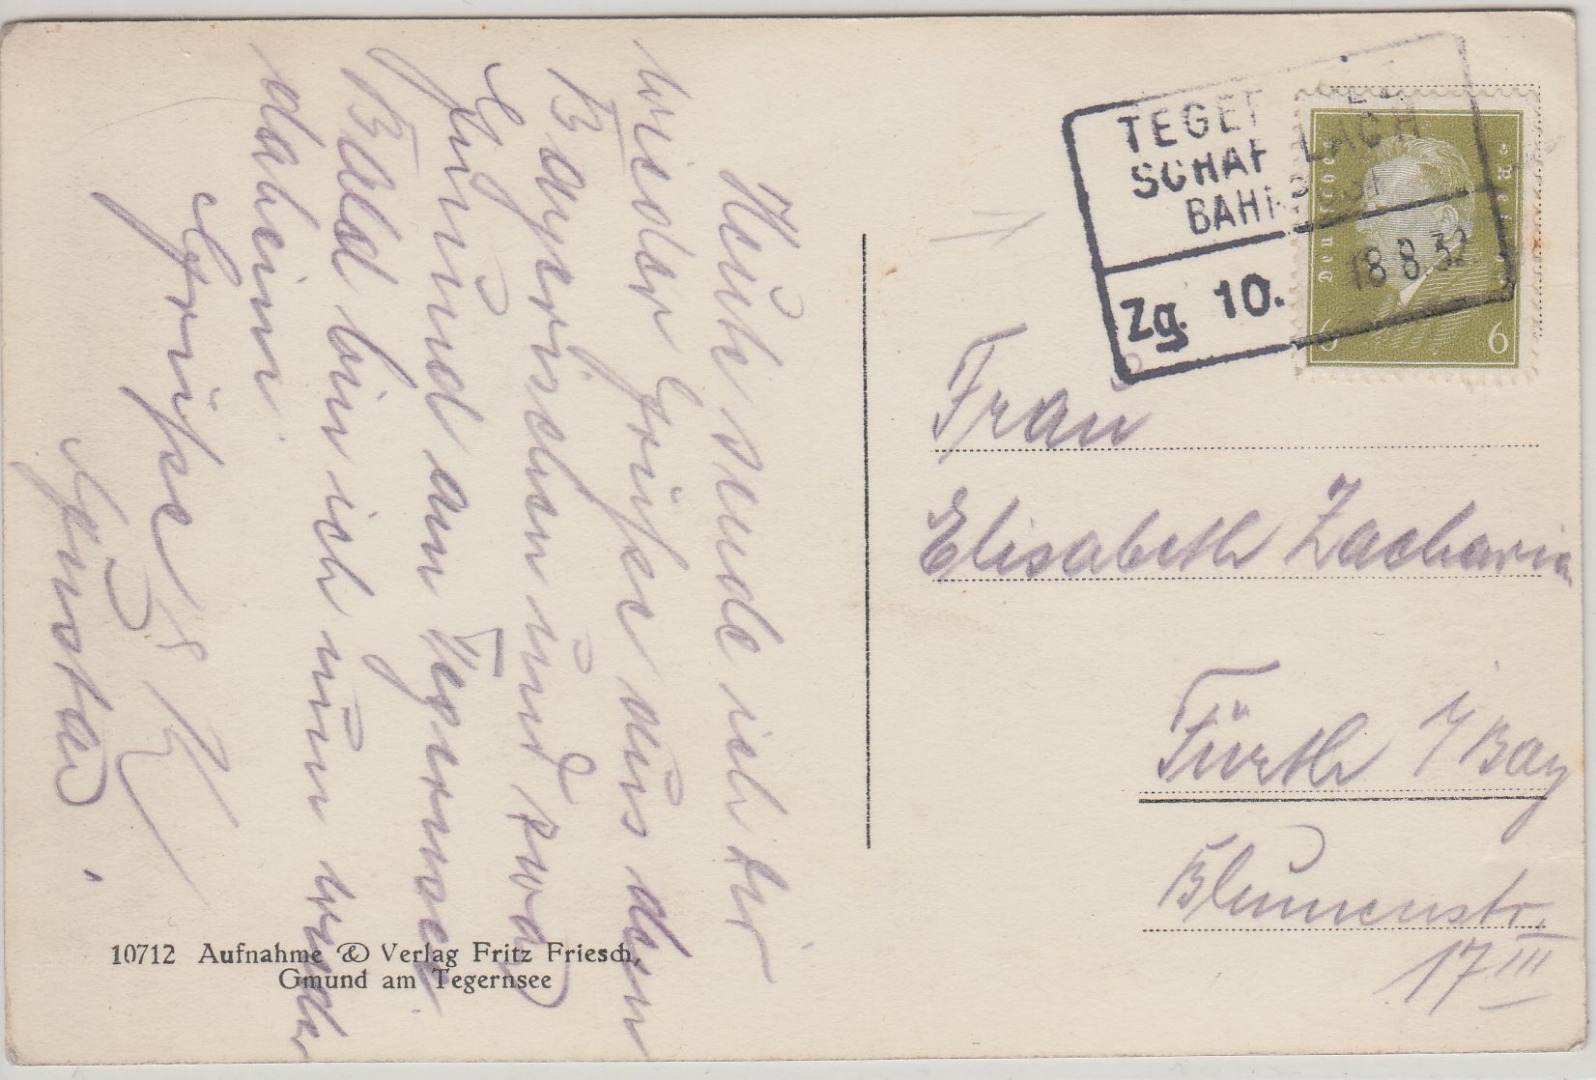 Heute sende ich Dir
wieder Grüße aus dem
Bayerischen und zwar
Gmund am Tegernsee.
Bald bin ich nun wieder
daheim.
Grüße & K
Gustav.
10712 Aufnahme & Verlag Fritz Friesch,
Gmund am Tegernsee
SCHAFTLACH
BAHNPOST
Zg. 10. 18 8.32
Deutsches Reich
6 6
Frau
Elisabeth Zacharias
Fürth i/Bay
Blumenstr.
17 III